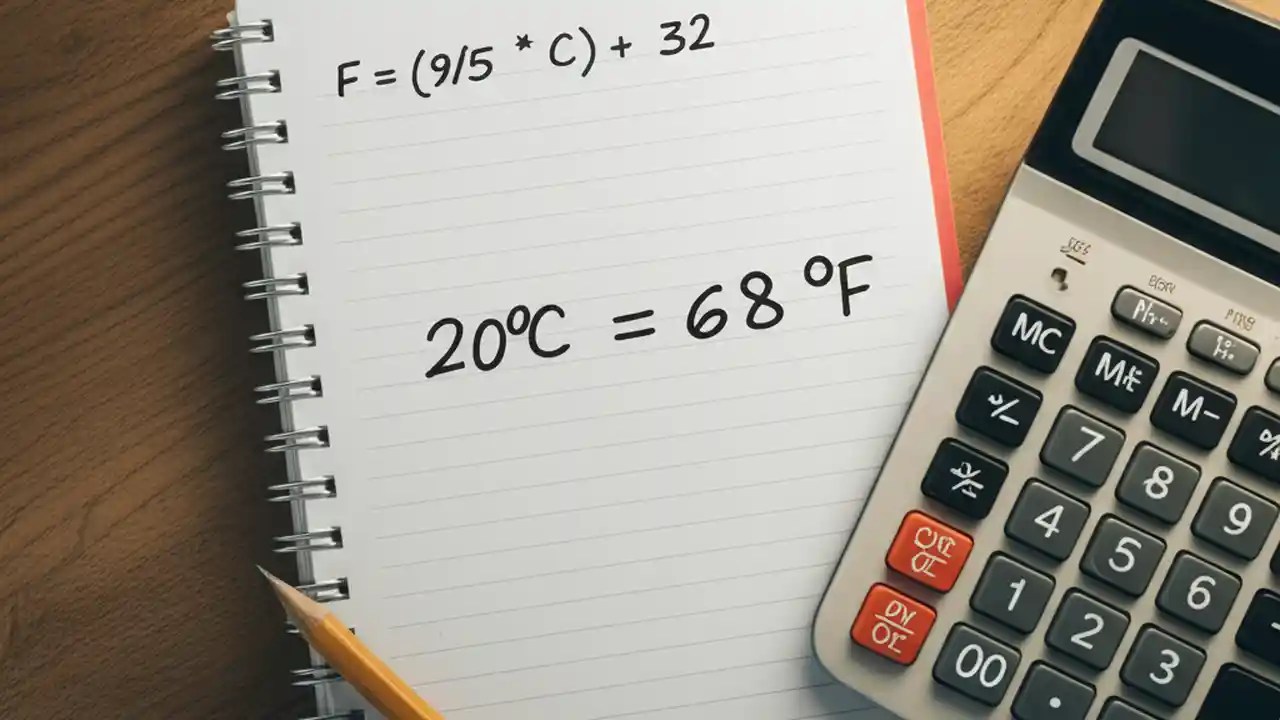 F = (9/5 * C) + 32
20°C = 68 °F
MC
M-
7
8
9
4
5
6
1
2
3
00
.